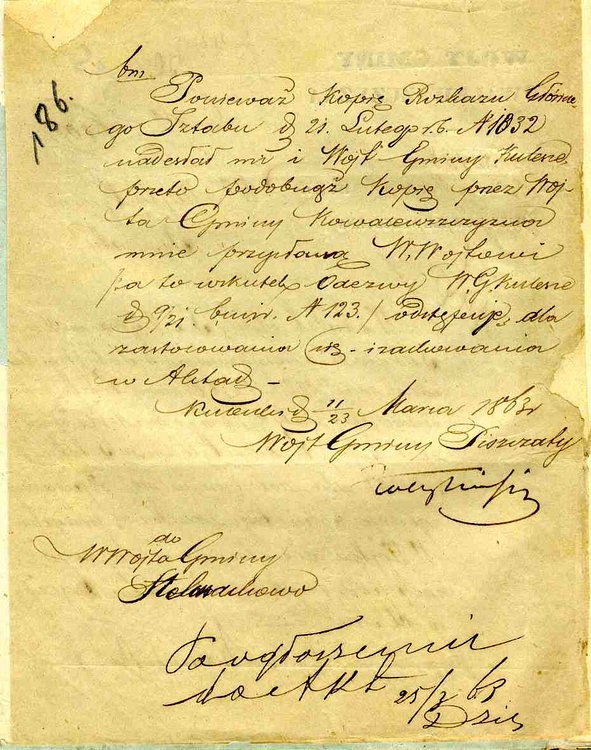 186.
Ponieważ Kopię Rozkazu Główne-
go Sztabu d 21. Lutego r.b. N 1032
nadesłał mi i Wójt Gminy Kulesze
przeto podobną Kopię przez Wój-
ta Gminy Kowalewszczyzna
mnie przysłaną W. Wójtowi
/a to wskutek Odezwy W.G Kulesze
d 9/21 b.m.r. N 123./ odstępuje, dla
zastosowania się i zachowania
w Aktach
d 11/23 Marca 1863r
Wójt Gminy Piszczaty
do
W Wójta Gminy
Stelmachowo
Po ogłoszeniu
do Akt 25/3 63